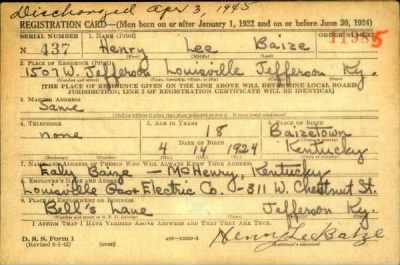 Discharged Apr 3, 1945
REGISTRATION CARD—(Men born on or after January 1, 1922 and on or before June 30, 1924)
SERIAL NUMBER 1. NAME (Print) ORDER NUMBER
N 437 Henry Lee Baize 11985
(First) (Middle) (Last)
2. PLACE OF RESIDENCE (Print)
1507 W. Jefferson Louisville Jefferson Ky.
(Number and street) (Town, township, village, or city) (County) (State)
[THE PLACE OF RESIDENCE GIVEN ON THE LINE ABOVE WILL DETERMINE LOCAL BOARD
JURISDICTION; LINE 2 OF REGISTRATION CERTIFICATE WILL BE IDENTICAL]
3. MAILING ADDRESS
Same
4. TELEPHONE 5. AGE IN YEARS 6. PLACE OF BIRTH
none 18 Baizetown
DATE OF BIRTH
4 14 1924 Kentucky
(Mo.) (Day) (Yr.)
7. NAME AND ADDRESS OF PERSON WHO WILL ALWAYS KNOW YOUR ADDRESS
Baize — McHenry, Kentucky
8. EMPLOYER'S NAME AND ADDRESS
Louisville Gas & Electric Co. - 311 W. Chestnut St.
9. PLACE OF EMPLOYMENT OR BUSINESS
Bell's Lane Jefferson Ky.
I AFFIRM THAT I HAVE VERIFIED ABOVE ANSWERS AND THAT THEY ARE TRUE.
D. S. S. Form 1
Henry Lee Baize